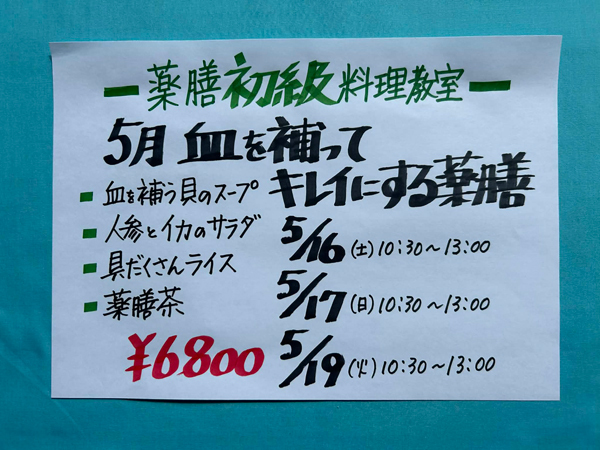 薬膳初級料理教室
5月 血を補って
キレイにする薬膳
血を補う貝のスープ
人参とイカのサラダ
具だくさんライス
薬膳茶
¥6800
5/16(土)10:30~13:00
5/17(日)10:30~13:00
5/19(火)10:30~13:00